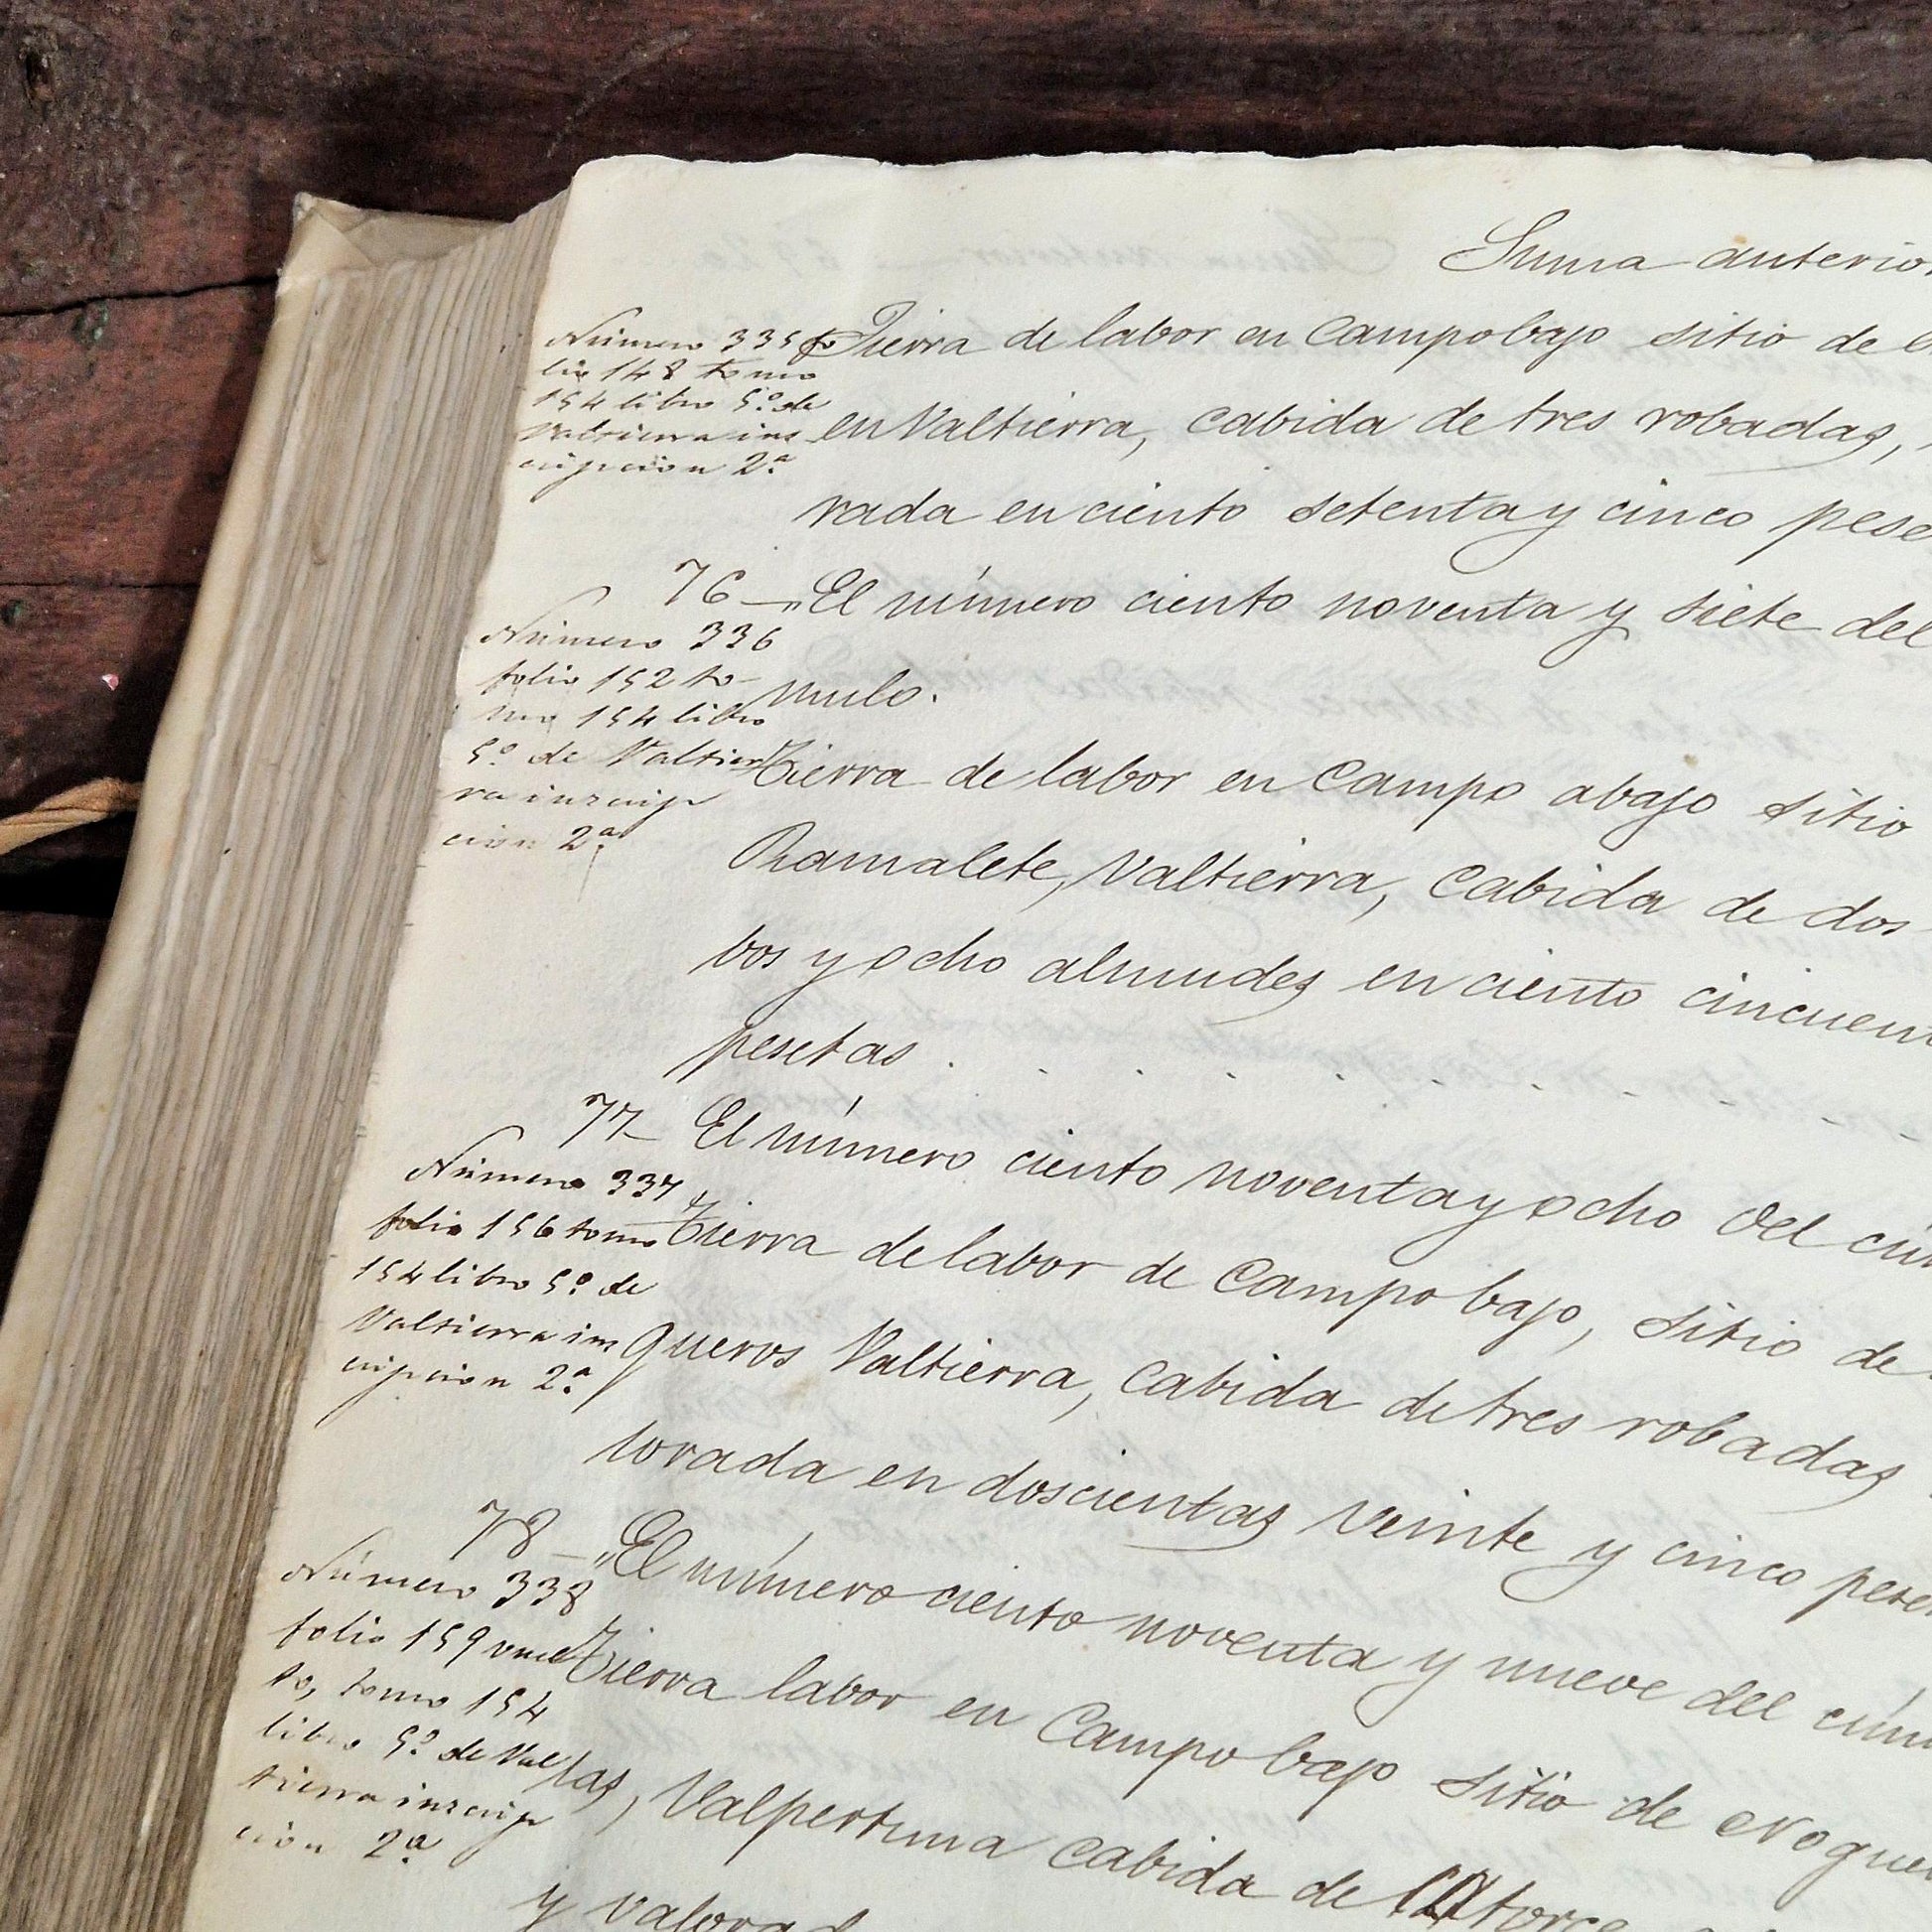 Suma anterior
Número 335 fo
lio 148 tomo
154 libro 5º de
Valtierra ins
cripcion 2ª
Tierra de labor en Campo bajo sitio de
en Valtierra, cabida de tres robadas,
rada en ciento setenta y cinco pese
76 — El número ciento noventa y siete del
Número 336
folio 152 to
mo 154 libro
5º de Valtier
ra inscrip
cion 2ª
mulo.
Tierra de labor en Campo abajo sitio
Ramalete, Valtierra, cabida de dos
bos y ocho almudes en ciento cincuen
pesetas . . . . . . . . . .
77 — El número ciento noventa y ocho del cú
Número 337
folio 156 tomo
154 libro 5º de
Valtierra ins
cripcion 2ª
Tierra de labor de Campo bajo, sitio de
queros Valtierra, cabida de tres robadas
lorada en doscientas veinte y cinco pese
78 — El número ciento noventa y nueve del cúm
Número 338
folio 159 vuel
to, tomo 154
libro 5º de Val
tierra inscrip
cion 2ª
Tierra labor en Campo bajo sitio de nogue
las, Valpertuna cabida de catorce
y valorad